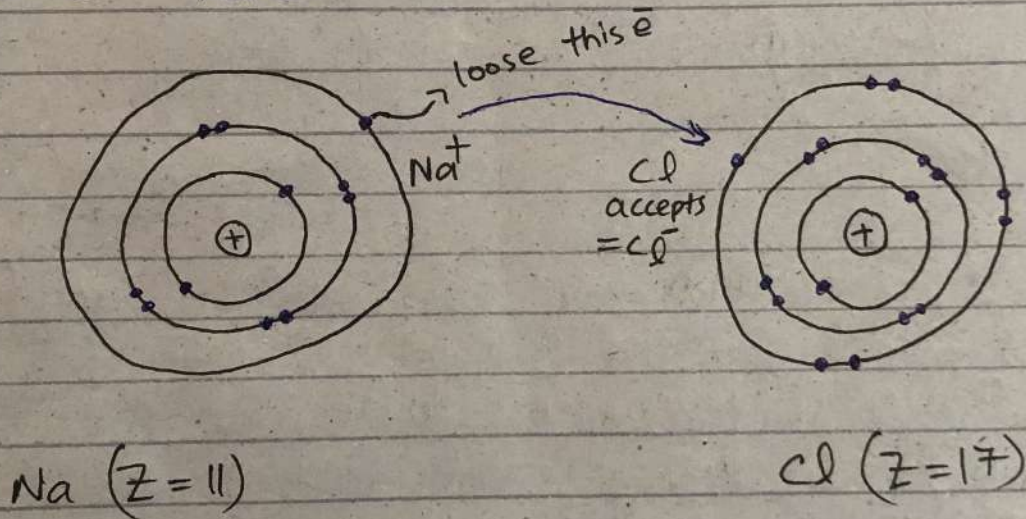 loose this ē
Na⁺
Cl
accepts
= Cl⁻
+
+
Na (Z = 11)
Cl (Z = 17)